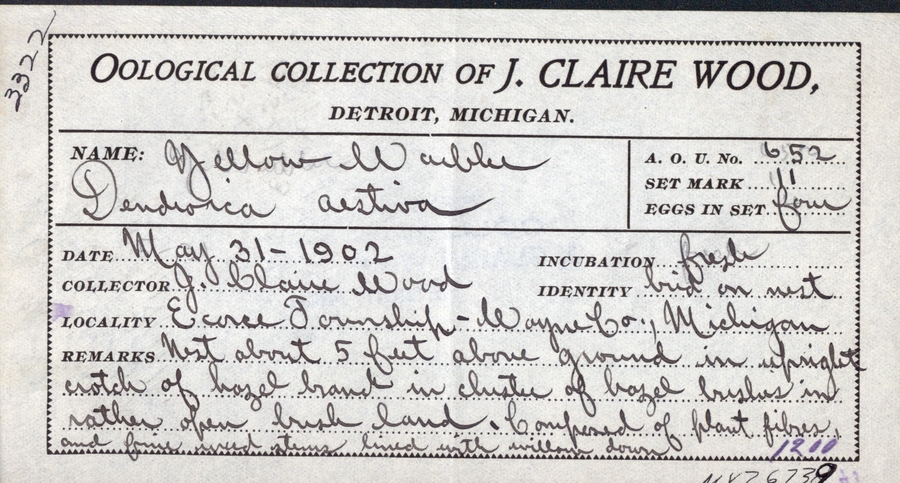 3322
OOLOGICAL COLLECTION OF J. CLAIRE WOOD,
DETROIT, MICHIGAN.
NAME: Yellow Warbler
Dendroica aestiva
A. O. U. No. 652
SET MARK 11
EGGS IN SET four
DATE May 31-1902
INCUBATION fresh
COLLECTOR J. Claire Wood
IDENTITY bird on nest
LOCALITY Ecorce Township - Wayne Co., Michigan
REMARKS Nest about 5 feet above ground in upright
crotch of hazel branch in cluster of hazel brushes in
rather open brush land. Composed of plant fibres,
and fine weed stems lined with willow down
1200